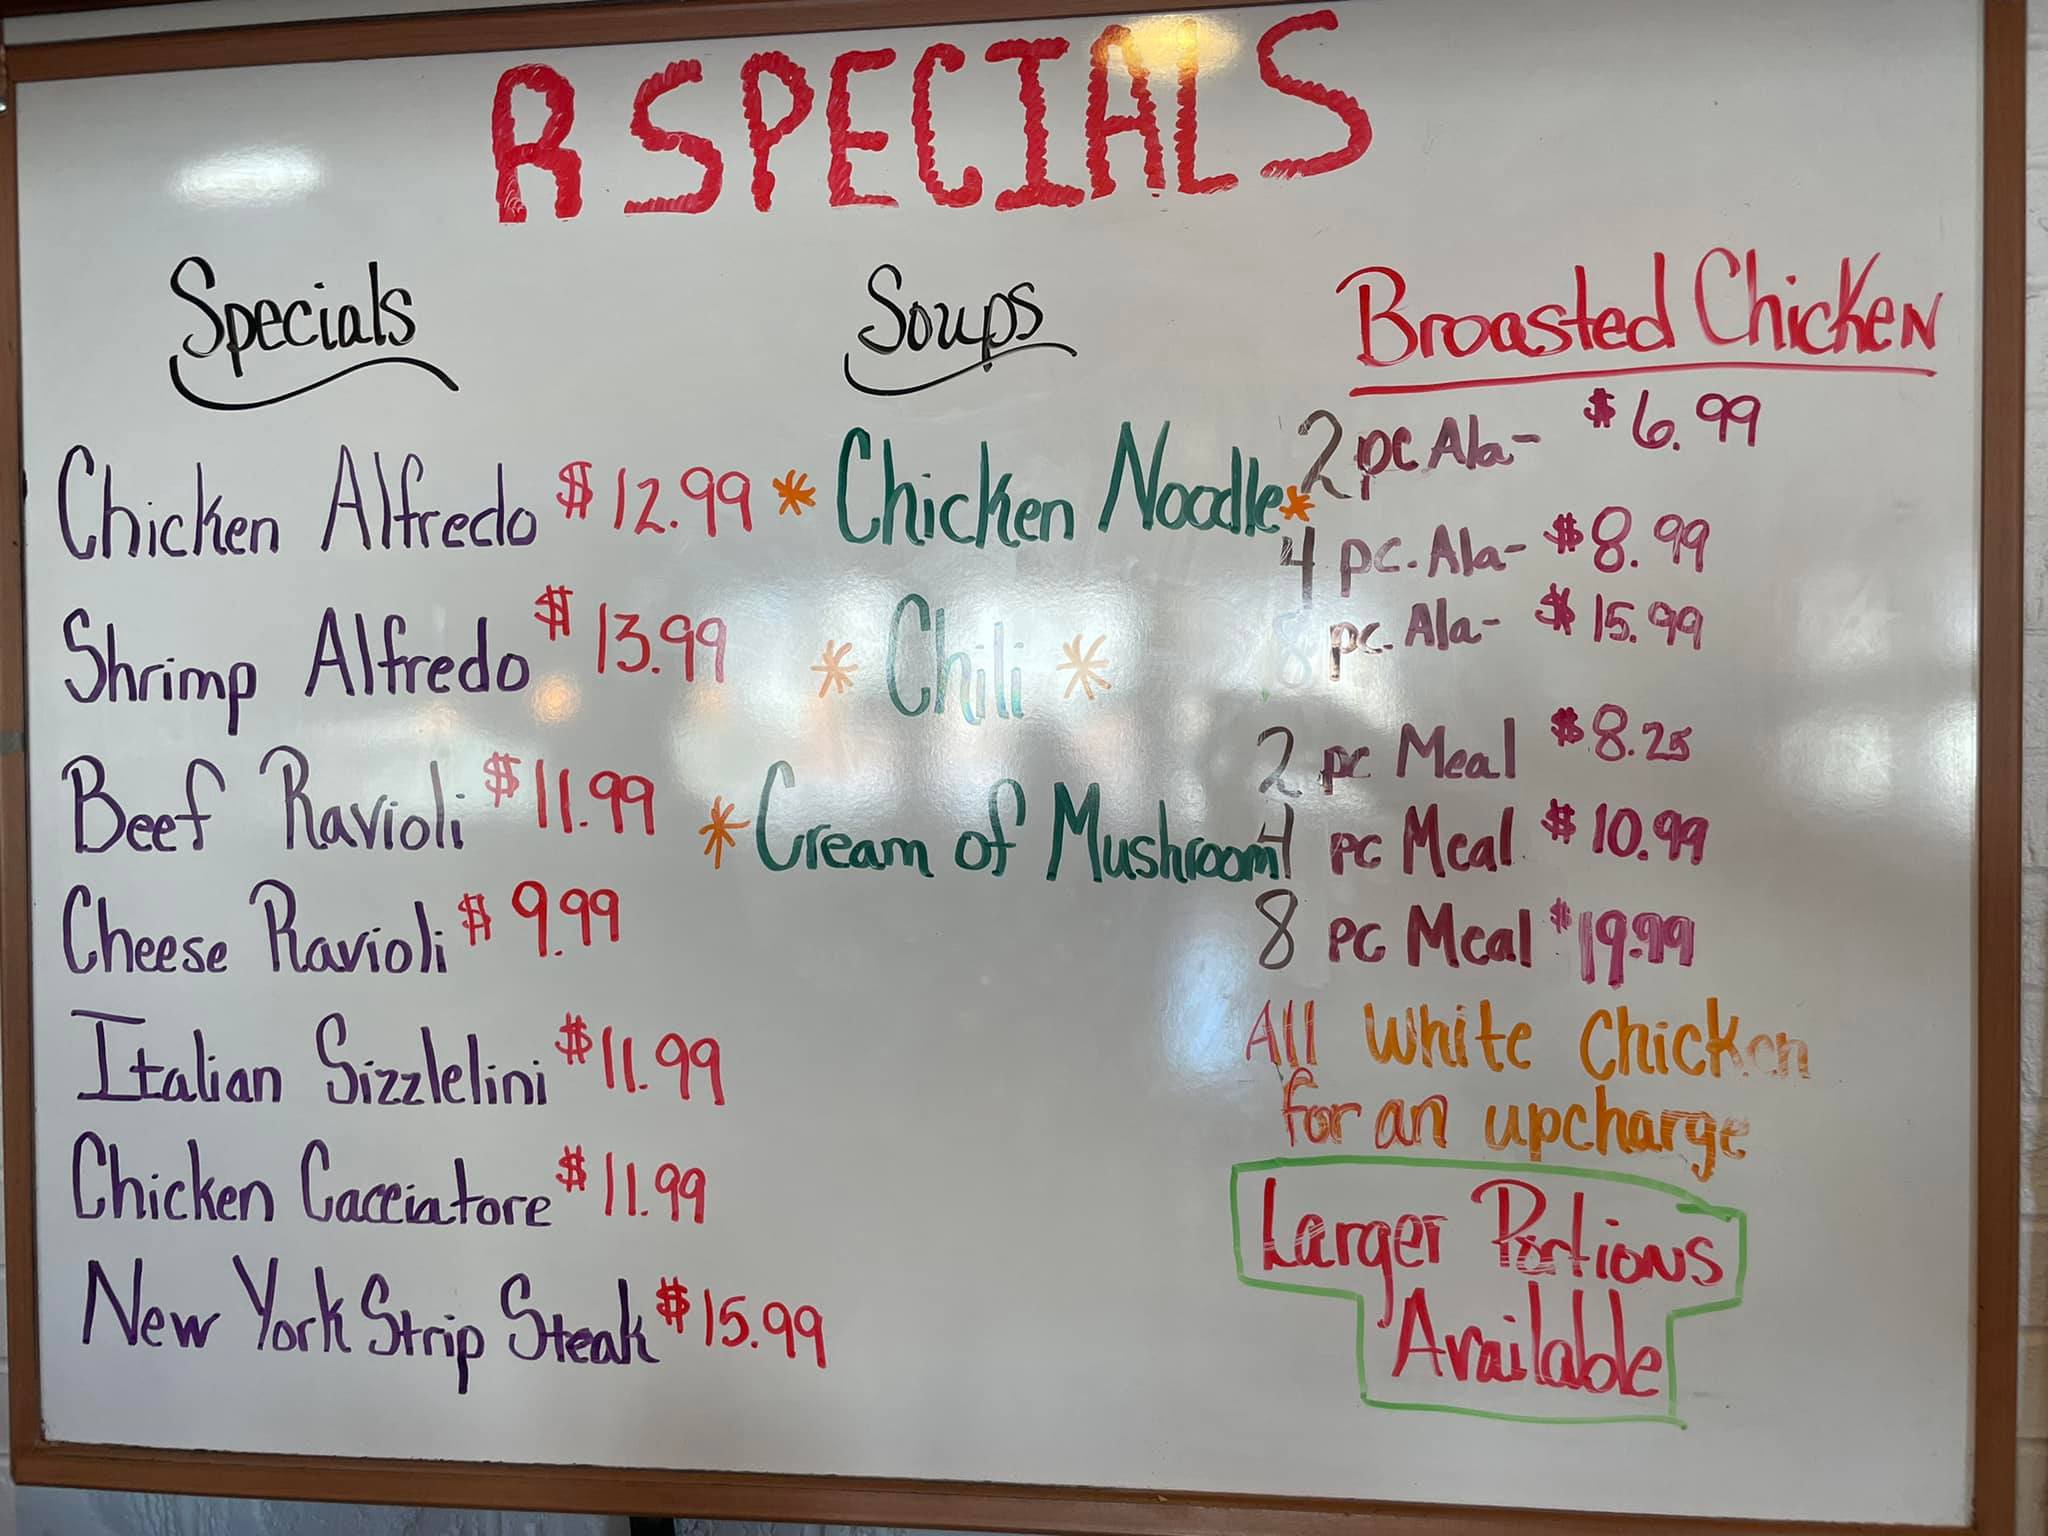 R SPECIALS
Specials
Chicken Alfredo $12.99
Shrimp Alfredo $13.99
Beef Ravioli $11.99
Cheese Ravioli $9.99
Italian Sizzlelini $11.99
Chicken Cacciatore $11.99
New York Strip Steak $15.99
Soups
* Chicken Noodle *
* Chili *
* Cream of Mushroom
Broasted Chicken
2 pc Ala- $6.99
4 pc. Ala- $8.99
8 pc. Ala- $15.99
2 pc Meal $8.25
4 pc Meal $10.99
8 pc Meal $19.99
All white chicken
for an upcharge
Larger Portions
Available